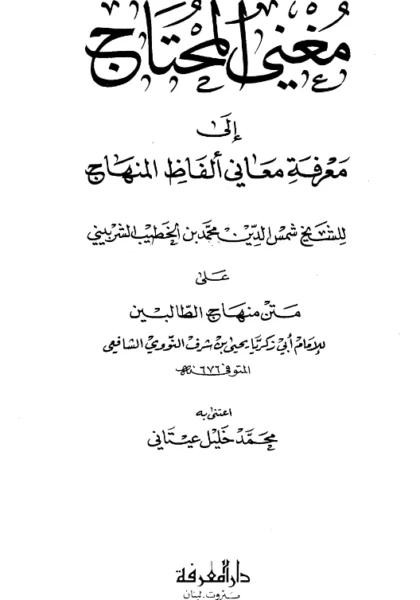 مغني المحتاج
إلى
معرفة معاني ألفاظ المنهاج
للشيخ شمس الدين محمد بن الخطيب الشربيني
على
متن منهاج الطالبين
للإمام أبي زكريا يحيى بن شرف النووي الشافعي
المتوفى ٦٧٦ هـ
اعتنى به
محمد خليل عيتاني
دار المعرفة
بيروت. لبنان